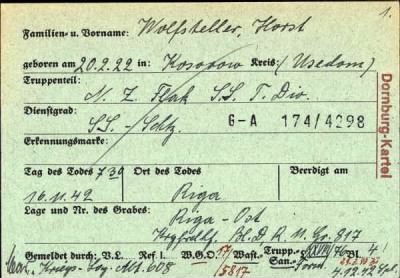 1.
Familien- u. Vorname: Wolfsteller, Horst
geboren am 20.2.22 in: Koserow Kreis: (Usedom)
Truppenteil:
N. Z. Flak SS. T. Div.
Dienstgrad:
SS.-/Schtz. G-A 174/4298
Erkennungsmarke:
Tag des Todes 7 30 Ort des Todes Beerdigt am
16.11.42 Riga
Lage und Nr. des Grabes: Riga-Ost
Bl. D A R. M. Gr. 817
Gemeldet durch: V.L. Ref. l. W.G.O. 17/ Wast.- Trupp.- San.-
Abt. 608 5817 4.12.42
Dornburg-Kartei